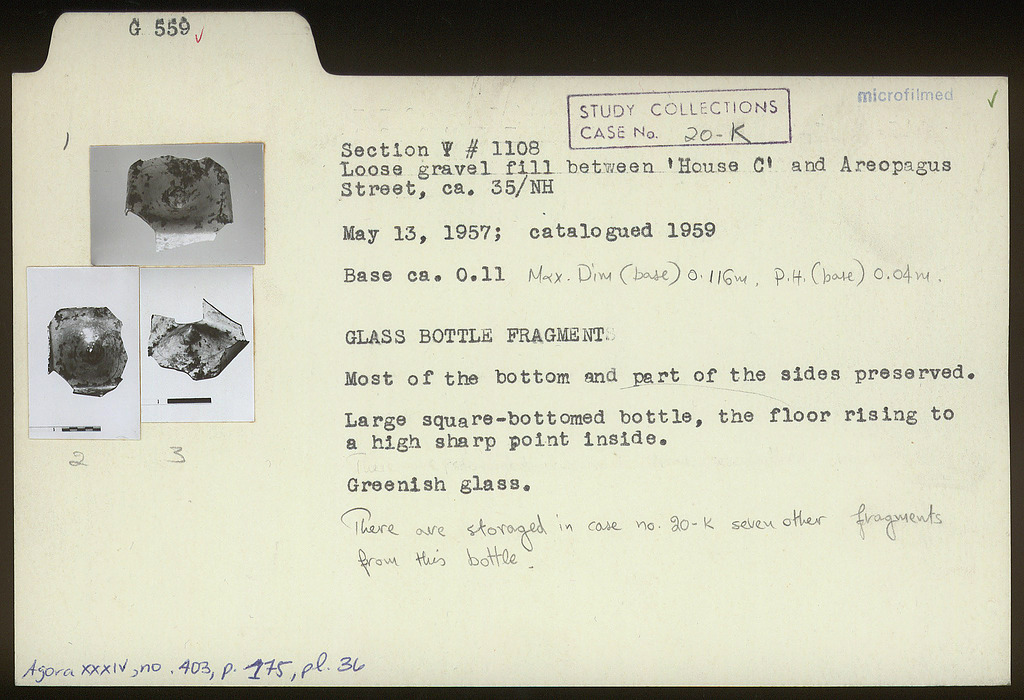 G 559
microfilmed
STUDY COLLECTIONS
CASE No. 20-K
1
Section Ψ # 1108
Loose gravel fill between 'House C' and Areopagus
Street, ca. 35/NH
May 13, 1957; catalogued 1959
Base ca. 0.11 Max. Dim (base) 0.116m, P.H. (base) 0.04m.
GLASS BOTTLE FRAGMENTS
Most of the bottom and part of the sides preserved.
Large square-bottomed bottle, the floor rising to
a high sharp point inside.
2 3
Greenish glass.
There are storaged in case no. 20-K seven other fragments
from this bottle.
Agora XXXIV, no. 403, p. 175, pl. 36